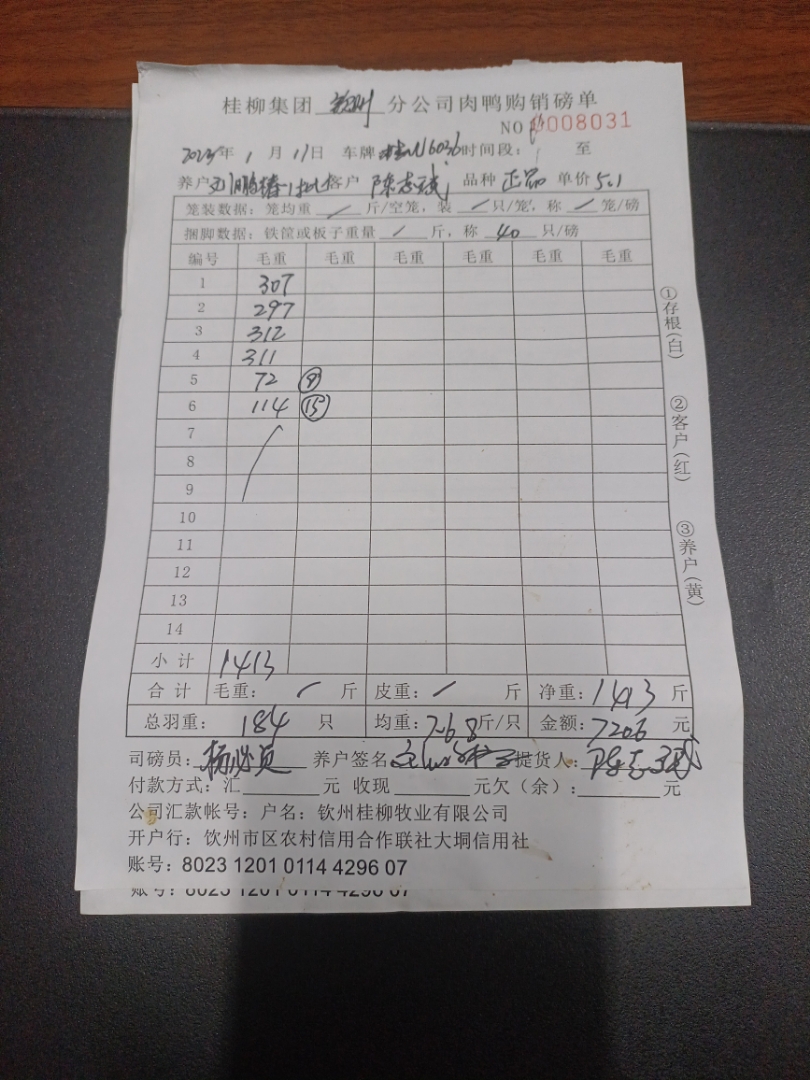 桂柳集团 钦州 分公司肉鸭购销磅单
NO 0008031
2023年 1 月 11日 车牌 N6036 时间段： 至
养户 客户 陈志 品种 正品 单价 5.1
笼装数据：笼均重 / 斤/空笼，装 / 只/笼，称 / 笼/磅
捆脚数据：铁筐或板子重量 / 斤，称 40 只/磅
编号 毛重 毛重 毛重 毛重 毛重 毛重
1 307
2 297
3 312
4 311
5 72 ⑨
6 114 ⑮
7
8
9
10
11
12
13
14
小计 1413
合计 毛重： / 斤 皮重： / 斤 净重：1413 斤
总羽重： 184 只 均重：7.68斤/只 金额：7206 元
司磅员： 养户签名 提货人：陈志
付款方式：汇 元 收现 元欠（余）： 元
公司汇款帐号：户名：钦州桂柳牧业有限公司
开户行：饮州市区农村信用合作联社大垌信用社
账号：8023 1201 0114 4296 07
账号：8023 1201 0114 4296 07
①存根(白)
②客户(红)
③养户(黄)